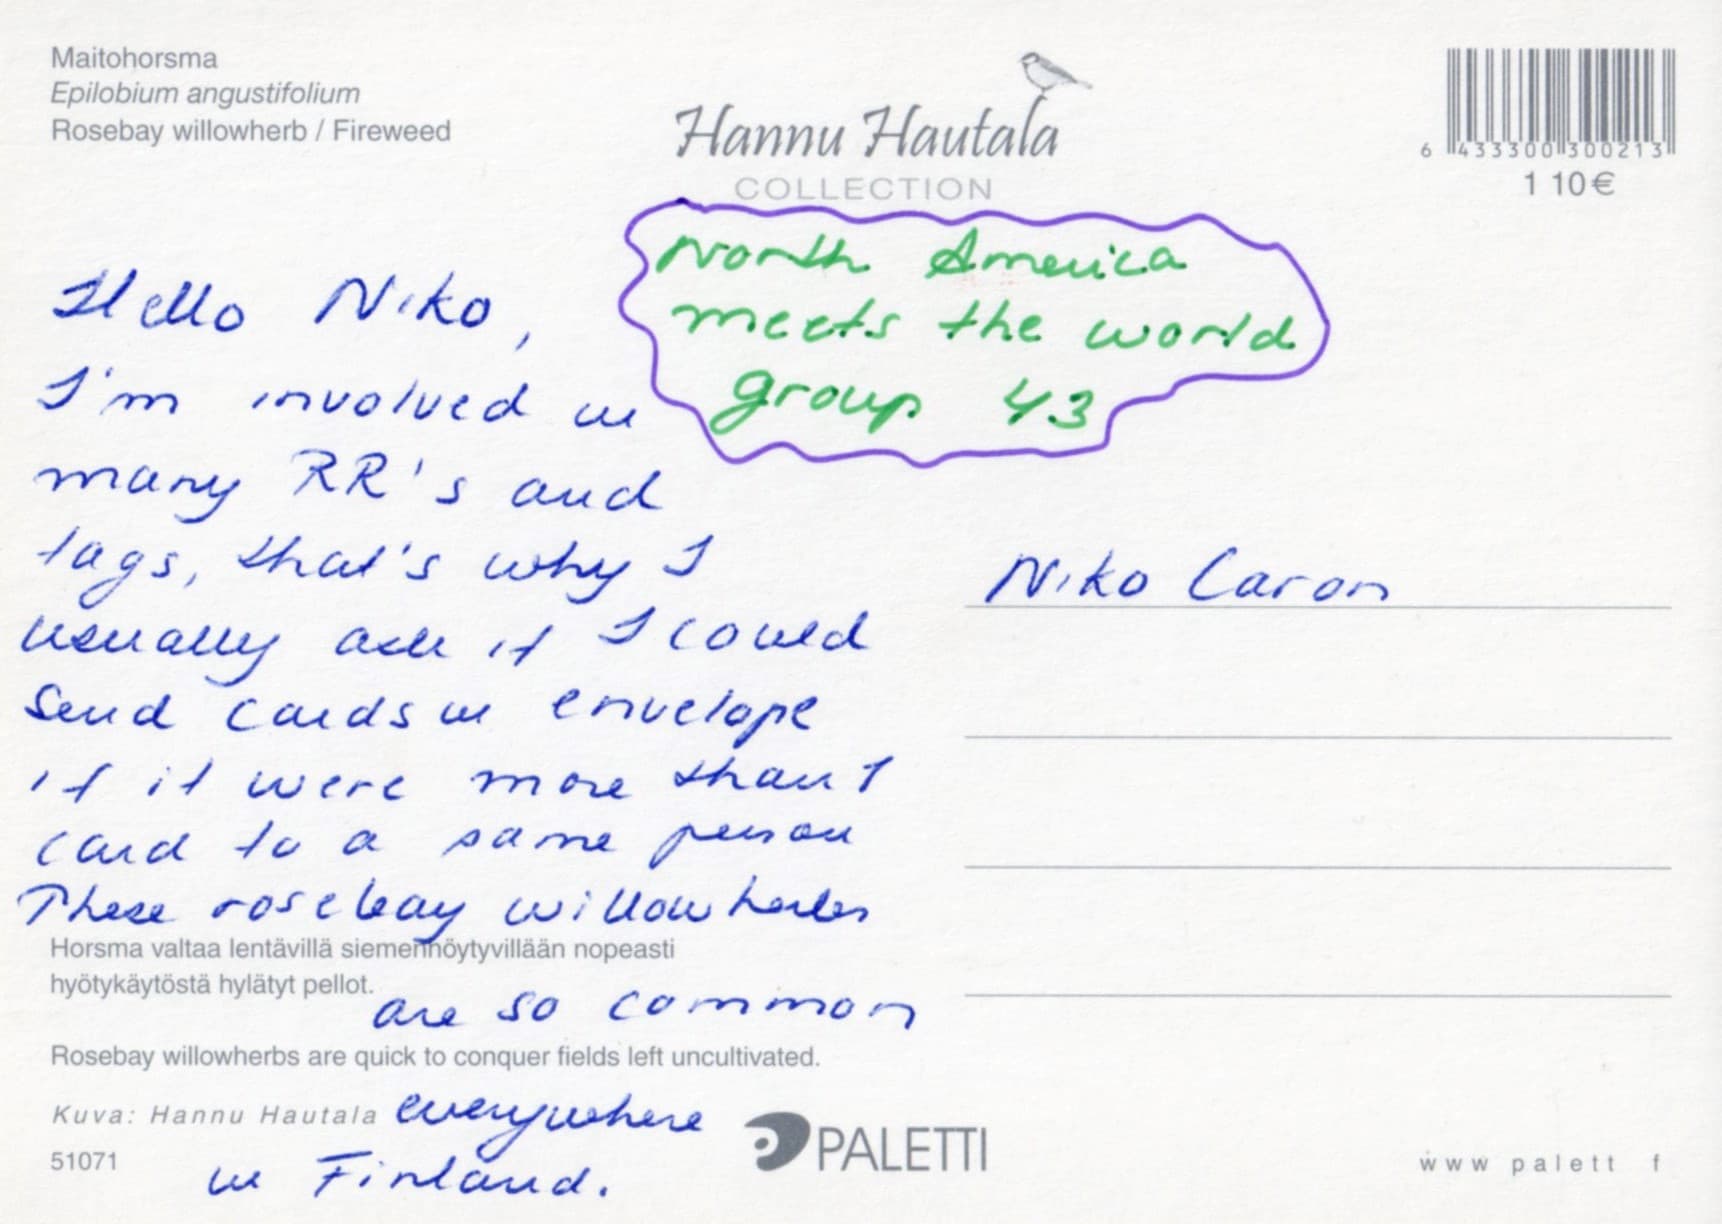 Maitohorsma
Epilobium angustifolium
Rosebay willowherb / Fireweed
Hannu Hautala
COLLECTION
6 433300 300213
1 10€
North America
meets the world
group 43
Hello Niko,
I'm involved in
many RR's and
tags, that's why I
usually ask if I could
send cards in envelope
if it were more than 1
card to a same person
These rosebay willowherbs
Horsma valtaa lentävillä siemenhöytyvillään nopeasti
hyötykäytöstä hylätyt pellot.
are so common
Rosebay willowherbs are quick to conquer fields left uncultivated.
Kuva: Hannu Hautala
everywhere
51071
in Finland.
PALETTI
www palett f
Niko Caron